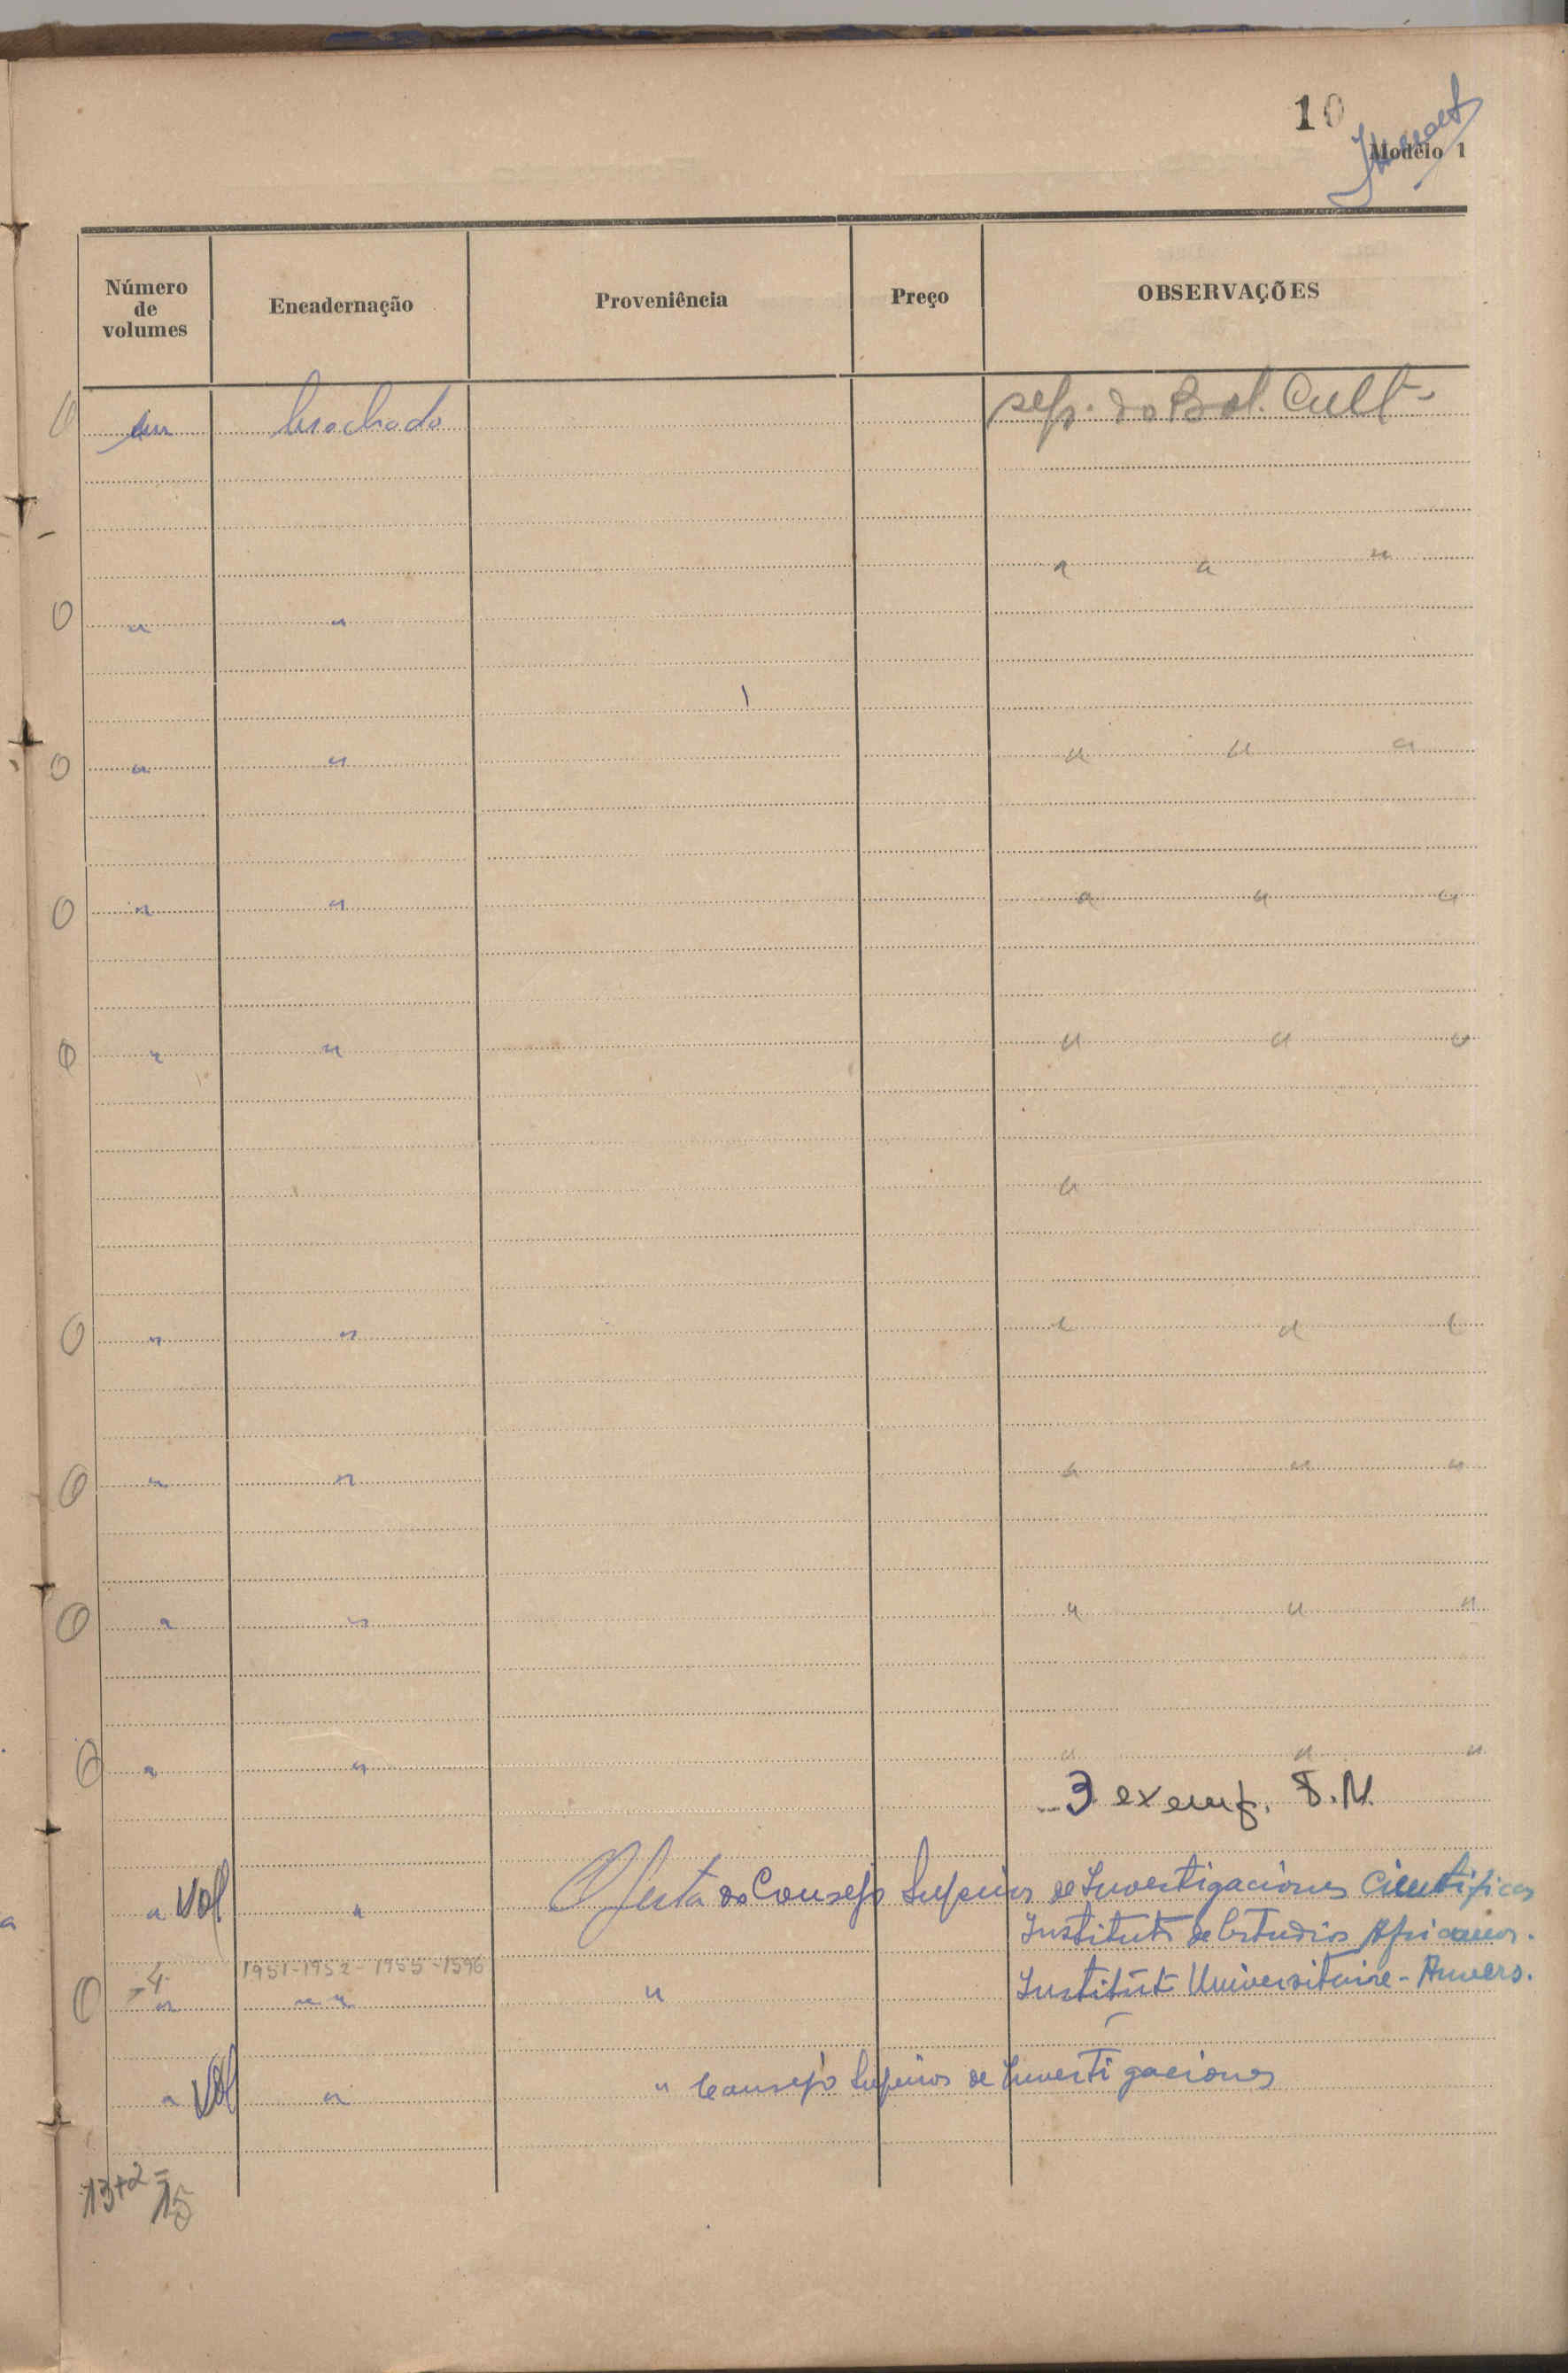 10
Modêlo 1
Número de volumes Encadernação Proveniência Preço OBSERVAÇÕES
O um brochado sep. do Bol. Cult.
" " "
O " "
O " " " " "
O " " " " "
O " " " " "
"
O " " " " "
O " " " " "
O " " " " "
O " " " " "
3 exemp. S.N.
" Vol " Oferta do Consejo Superior de Investigaciones Cientificas
Instituto de Estudios Africanos.
4 1951-1952-1955-1596
O " " " " Institut Universitaire - Anvers.
" Vol " " Consejo Superior de Investigaciones
13+2=
15